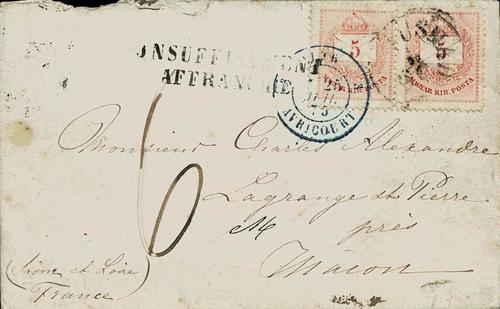 INSUFFISAMMENT
AFFRANCHIE
5
MAGYAR KIR. POSTA
5
MAGYAR KIR. POSTA
25
75
AVRICOURT
6
Monsieur Charles Alexandre
Lagrange St Pierre
près
Macon
(Saône et Loire)
France